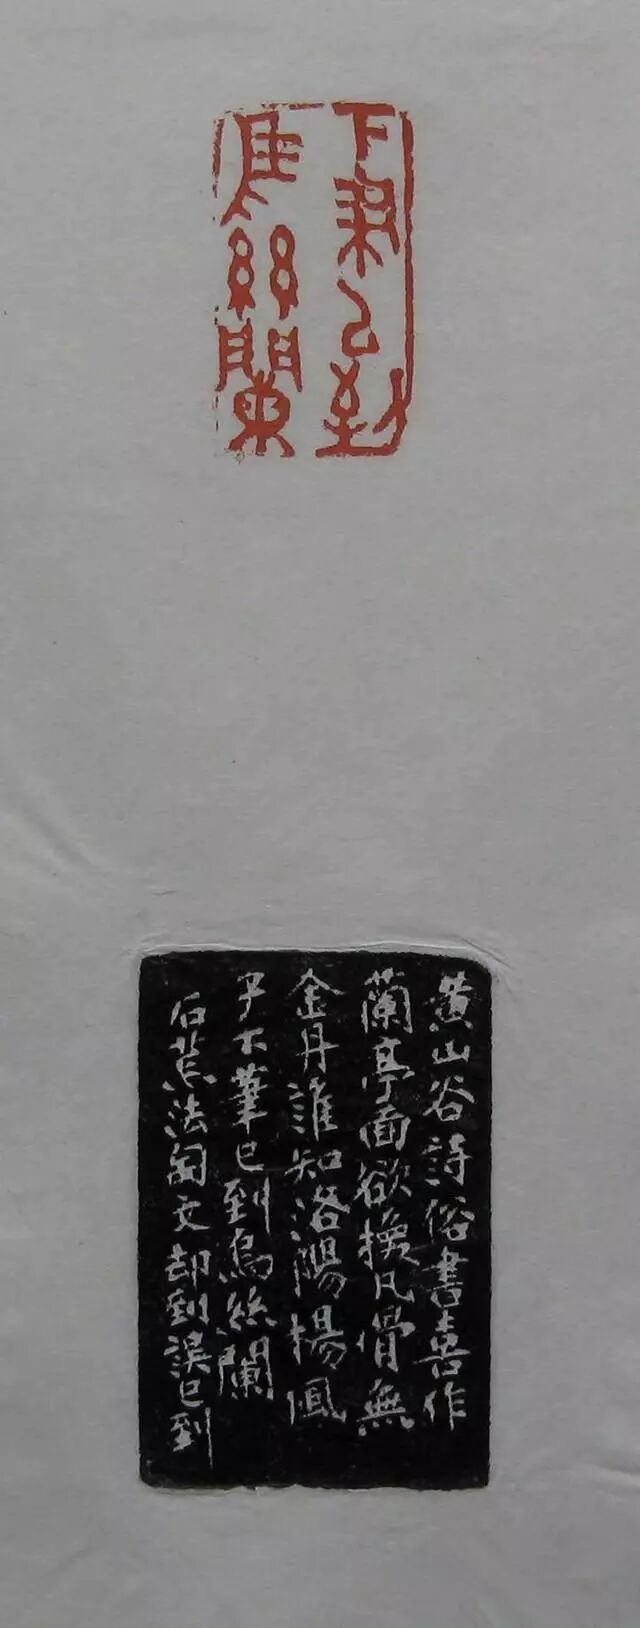 下筆已到
烏絲闌
黄山谷詩俗書喜作
蘭亭面欲換凡骨無
金丹誰知洛陽楊風
子下筆已到烏絲闌
法匋文却到誤已到